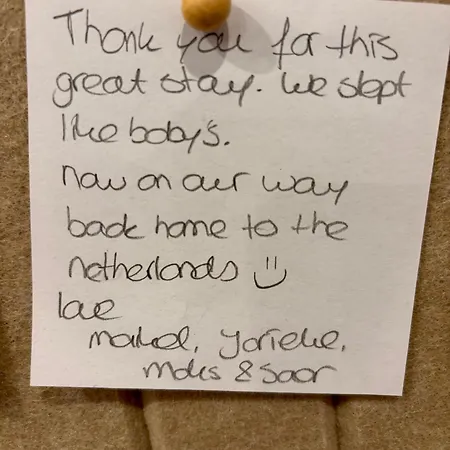 Thank you for this
great stay. We slept
like baby's.
now on our way
back home to the
netherlands
love
&